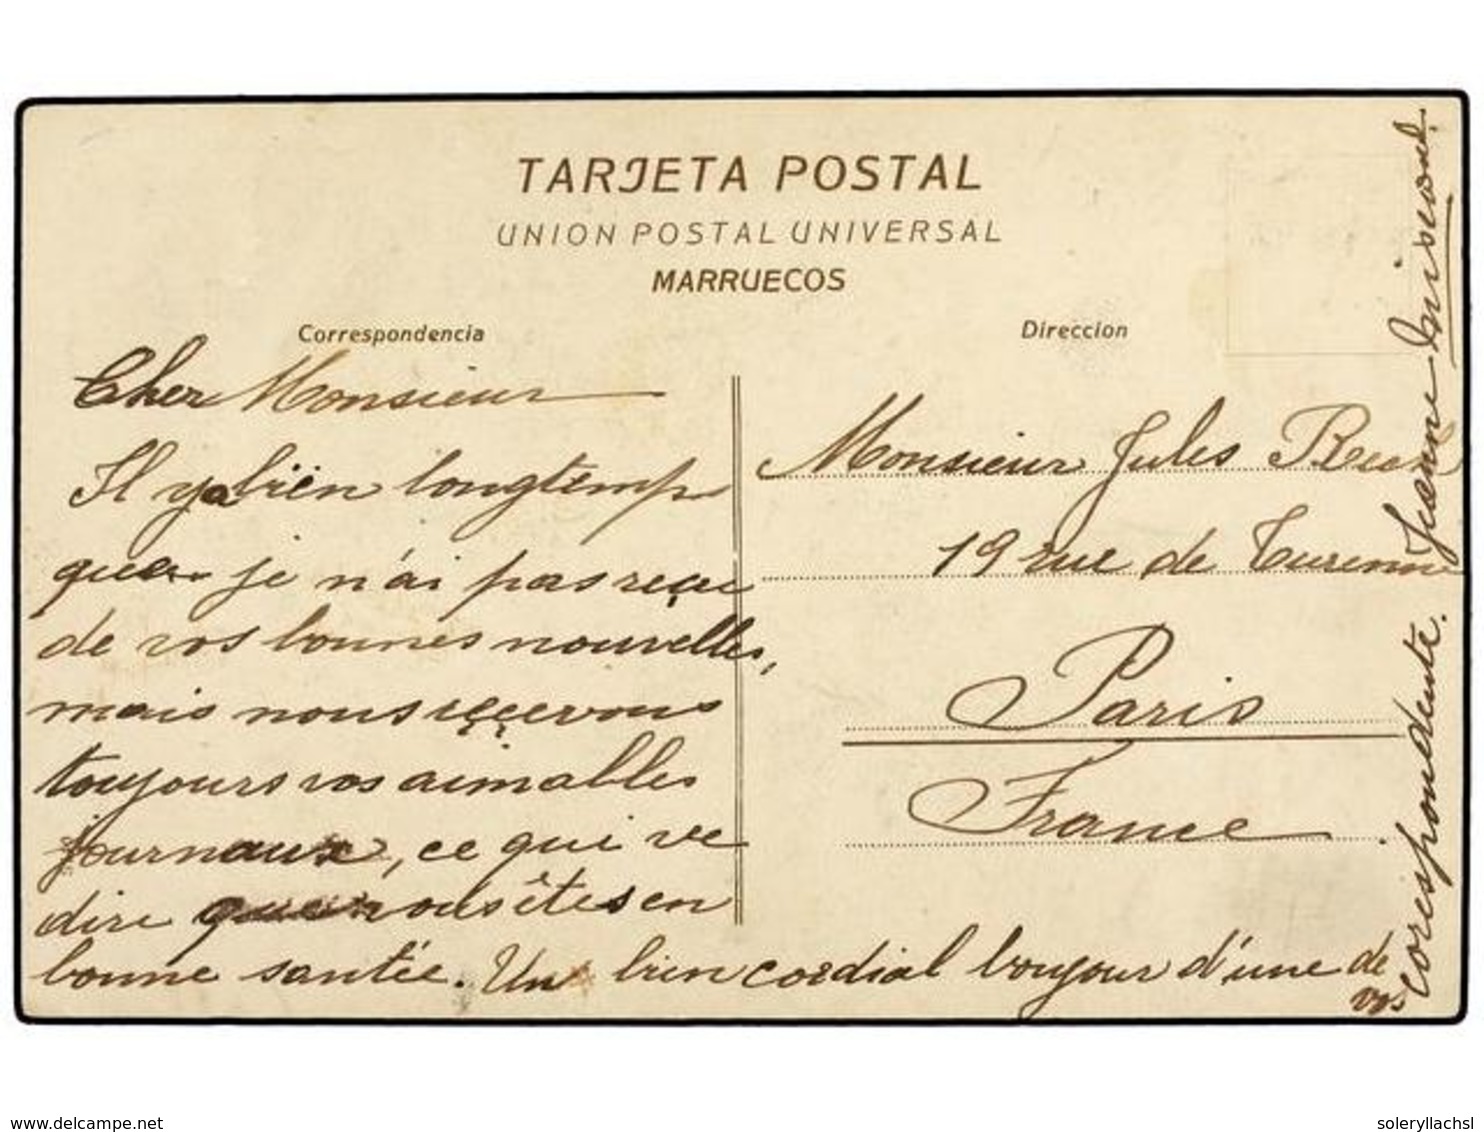 TARJETA POSTAL
UNION POSTAL UNIVERSAL
MARRUECOS
Correspondencia
Direccion
Cher Monsieur
Il y a bien longtemps
que je n'ai pas reçu
de vos bonnes nouvelles,
mais nous reçevons
toujours vos aimables
journaux, ce qui ve
dire que vous êtes en
bonne santée. Un bien cordial bonjour d'une de
vos
corespondente.
Jeanne
Monsieur Jules
19 rue de Turenne
Paris
France
www.delcampe.net
soleryllachsl